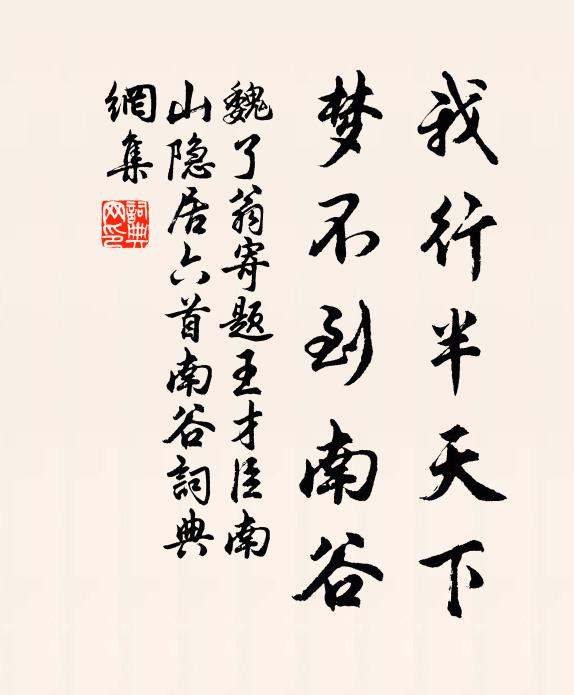 我行半天下
梦不到南谷
魏了翁寄题王才臣南
山隐居六首南谷詞典
網集
詞典
网印